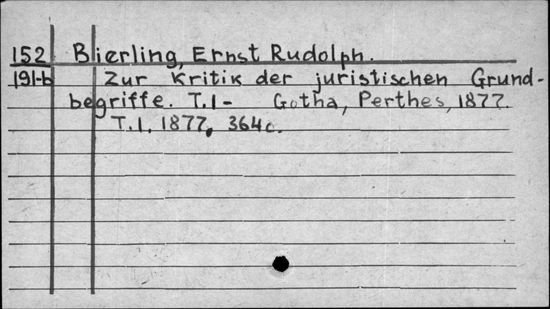 152 Bierling, Ernst Rudolph.
191-b Zur Kritik der juristischen Grund-
begriffe. T.1- Gotha, Perthes, 1877.
T.1. 1877. 364c.